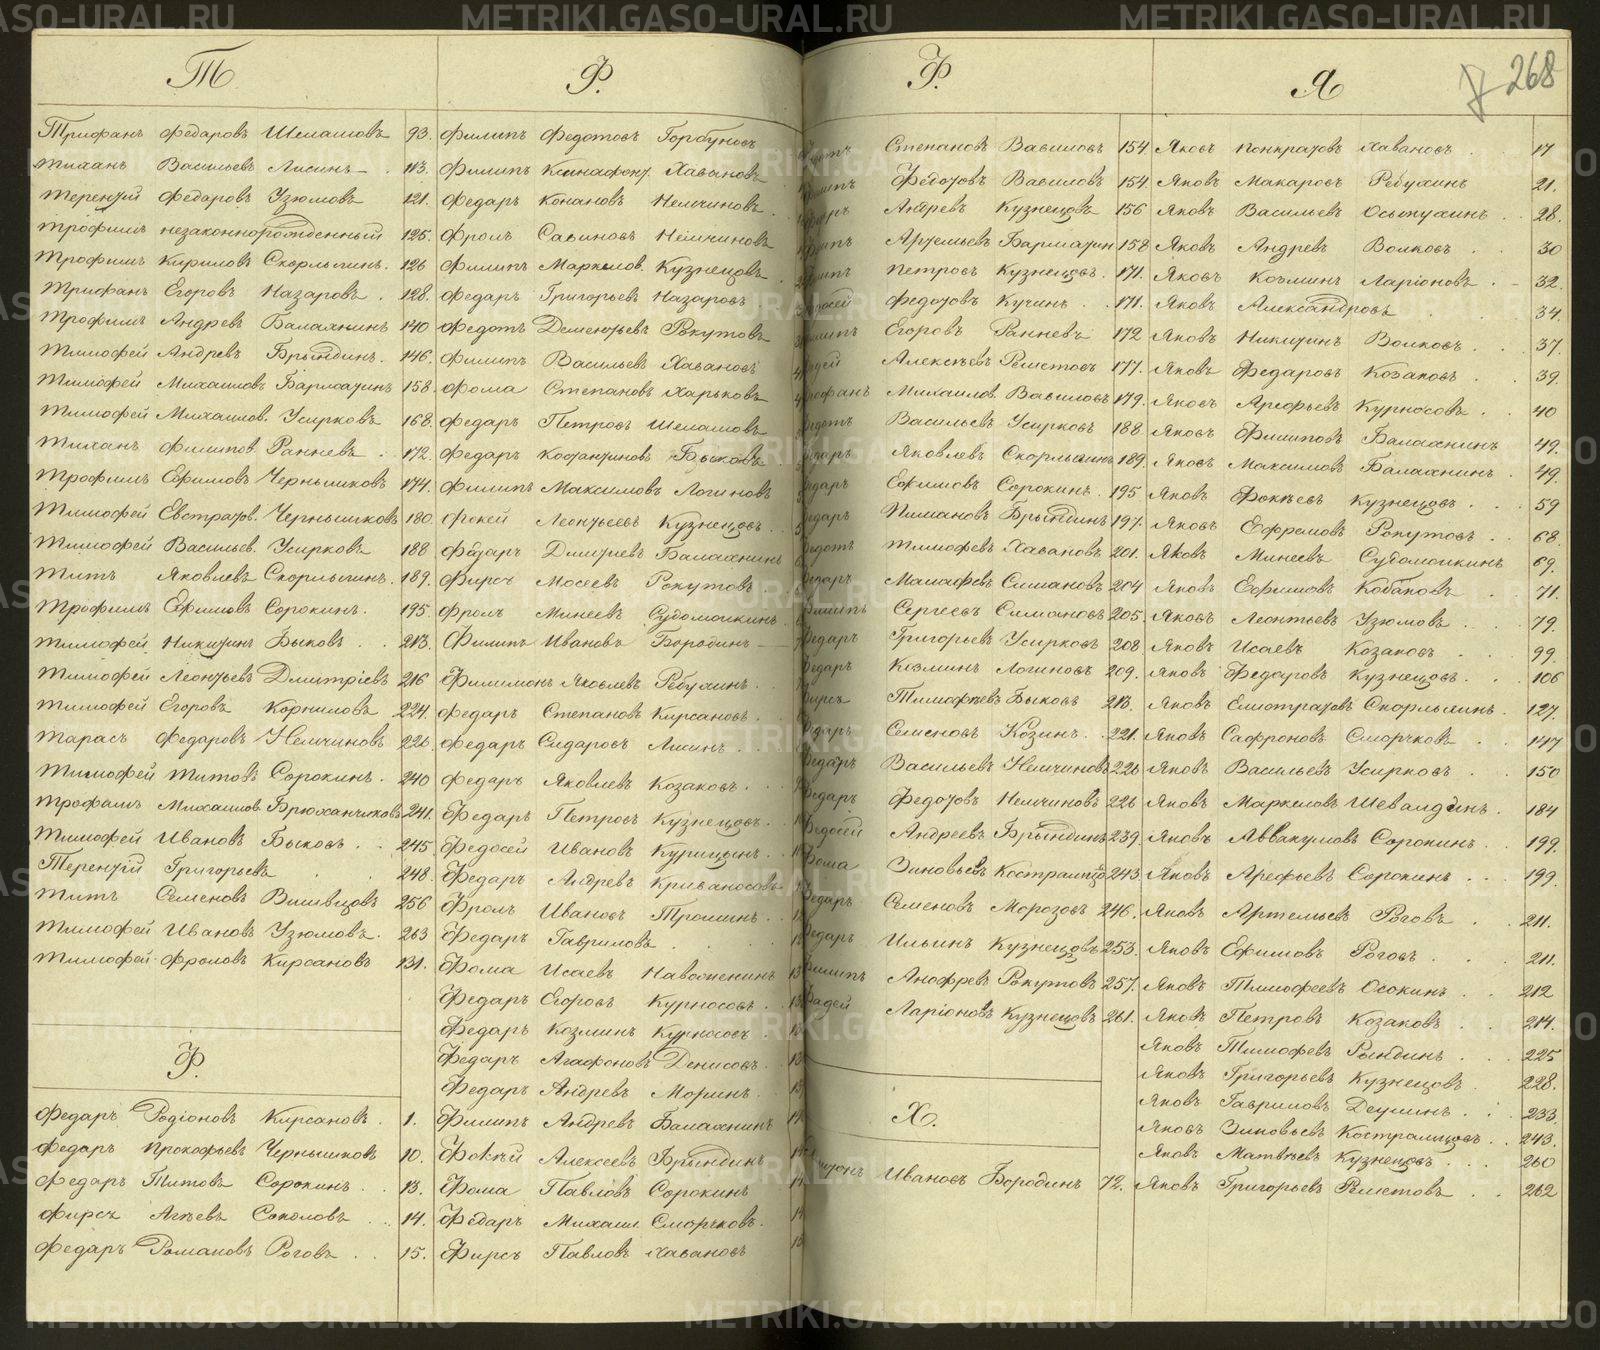 Т
Трифанъ Федаровъ Шелашовъ 93.
Тиханъ Васильевъ Лисинъ 113.
Терентiй Федаровъ Узюмовъ 121.
Трофимъ незаконнорожденный 125.
Трофимъ Кириловъ Скорлыпинъ. 126
Трифанъ Егоровъ Назаровъ. 128.
Трофимъ Андревъ Балахнинъ 140
Тимофей Андревъ Брындинъ. 146.
Тимофей Михаиловъ 158.
Тимофей Михаилов. Усирковъ 168.
Тиханъ Филипов. Ранневъ. 172.
Трофимъ Ефимовъ Чернышковъ 174.
Тимофей Евстратов. Чернышковъ 180.
Тимофей Васильев. Усирковъ 188
Титъ Яковлевъ Скорлыпинъ. 189.
Трофимъ Ефимовъ Сорокинъ. 195
Тимофей Никитинъ Быковъ. 213.
Тимофей Леонтьевъ Дмитрiевъ 216
Тимофей Егоровъ Корниловъ 224.
Тарасъ Федаровъ Немчиновъ 226.
Тимофей Титовъ Сорокинъ. 240
Трофимъ Михаилов. Брюханчиковъ 241.
Тимофей Ивановъ Быковъ. 245
Терентiй Григорьевъ 248.
Титъ Семеновъ 256
Тимофей Ивановъ Узюмовъ. 263
Тимофей Фроловъ Кирсановъ 131.
Ф.
Федаръ Родiоновъ Кирсановъ. 1.
Федаръ Прокофьевъ Чернышковъ 10.
Федаръ Титовъ Сорокинъ. 13.
Фирсъ Агѣевъ Соколовъ 14.
Федаръ Романовъ Роговъ. 15.
Ф.
Филипъ Федотовъ Горбуновъ
Филипъ Хавановъ
Федаръ Конановъ Немчиновъ.
Фролъ Савиновъ Немчиновъ
Филипъ Маркелов. Кузнецовъ
Федаръ Григорьевъ Назаровъ
Федотъ Дементьевъ Рокутовъ
Филипъ Васильевъ Хавановъ
Фома Степановъ Харьковъ
Федаръ Петровъ Шелашовъ
Федаръ Костантиновъ Быковъ
Филипъ Максимовъ Логиновъ
Фокей Леонтьевъ Кузнецовъ.
Федаръ Дмитриевъ Балахнинъ
Фирсъ Мосеевъ Рокутовъ.
Фролъ Минеевъ Судомойкинъ
Филипъ Ивановъ Бородинъ
Филимонъ Яковлевъ Ребухинъ.
Федаръ Степановъ Кирсановъ.
Федаръ Сидаровъ Лисинъ.
Федаръ Яковлевъ Козаковъ.
Федаръ Петровъ Кузнецовъ.
Федосей Ивановъ Курицынъ.
Федаръ Андревъ Криваносовъ
Фролъ Ивановъ Трошинъ.
Федаръ Гавриловъ.
Фома Исаевъ Наволенинъ
Федаръ Егоровъ Курносовъ.
Федаръ Козминъ Курносовъ.
Федаръ Агафоновъ Денисовъ.
Федаръ Андревъ Моринъ.
Филипъ Андревъ Балахнинъ
Фокѣй Алексеевъ Брындинъ
Фома Павловъ Сорокинъ
Федаръ Михаил. Сморчковъ.
Фирсъ Павловъ Хавановъ
268
Ф.
Степановъ Вавиловъ 154.
Федотовъ Вавиловъ 154.
Андревъ Кузнецовъ 156
Артемьевъ 158
Петровъ Кузнецовъ. 171.
Федотовъ Кучинъ. 171.
Егоровъ Ранневъ 172
Алексѣевъ Решетовъ 177.
Михаилов. Вавиловъ 179.
Васильевъ Усирковъ 188
Яковлевъ Скорлыпинъ 189.
Ефимовъ Сорокинъ. 195
Пимановъ Брындинъ 197.
Тимофевъ Хавановъ 201.
Малафевъ Симановъ 204
Сергеевъ Симановъ 205.
Федаръ Григорьевъ Усирковъ 208
Федаръ Козминъ Логиновъ 209.
Тимофѣевъ Быковъ 213.
Семеновъ Козинъ. 221.
Федаръ Васильевъ Немчиновъ 226
Федаръ Федотовъ Немчиновъ 226
Федосей Андреевъ Брындинъ 239.
Фома Зиновьевъ Костромцов 243.
Федаръ Семеновъ Морозовъ 246.
Федаръ Ильинъ Кузнецовъ 253.
Филипъ Анофревъ Рокутовъ 257.
Фадей Ларiоновъ Кузнецовъ 261.
Х.
Ивановъ Бородинъ 72.
Я
Яковъ Понкратовъ Хавановъ. 17
Яковъ Макаровъ Ребухинъ 21.
Яковъ Васильевъ Осыпухинъ. 28.
Яковъ Андревъ Волковъ. 30
Яковъ Козминъ Ларiоновъ. 32.
Яковъ Александровъ 34.
Яковъ Никитинъ Волковъ. 37.
Яковъ Федаровъ Козаковъ. 39.
Яковъ Арефьевъ Курносовъ. 40
Яковъ Филиповъ Балахнинъ 49.
Яковъ Максимовъ Балахнинъ. 49.
Яковъ Фокѣевъ Кузнецовъ. 59
Яковъ Ефремовъ Рокутовъ. 68.
Яковъ Минеевъ Судомойкинъ 69.
Яковъ Ефимовъ Кобаковъ. 71.
Яковъ Леонтьевъ Узюмовъ. 79.
Яковъ Исаевъ Козаковъ. 99.
Яковъ Федаровъ Кузнецовъ. 106
Яковъ Скорлыпинъ. 127.
Яковъ Сафроновъ Сморчковъ. 147
Яковъ Васильевъ Усирковъ. 150
Яковъ Маркеловъ Шевалдинъ. 184
Яковъ Аввакумовъ Сорокинъ. 199.
Яковъ Арефьевъ Сорокинъ. 199.
Яковъ Артемьевъ Роговъ. 211.
Яковъ Ефимовъ Роговъ. 211.
Яковъ Тимофеевъ Осокинъ. 212
Яковъ Петровъ Козаковъ. 214.
Яковъ Тимофевъ Рындинъ. 225
Яковъ Григорьевъ Кузнецовъ. 228.
Яковъ Гавриловъ Деулинъ. 233.
Яковъ Зиновьевъ Костромцовъ. 243.
Яковъ Матвѣевъ Кузнецовъ. 260
Яковъ Григорьевъ Решетовъ. 262
METRIKI.GASO-URAL.RU